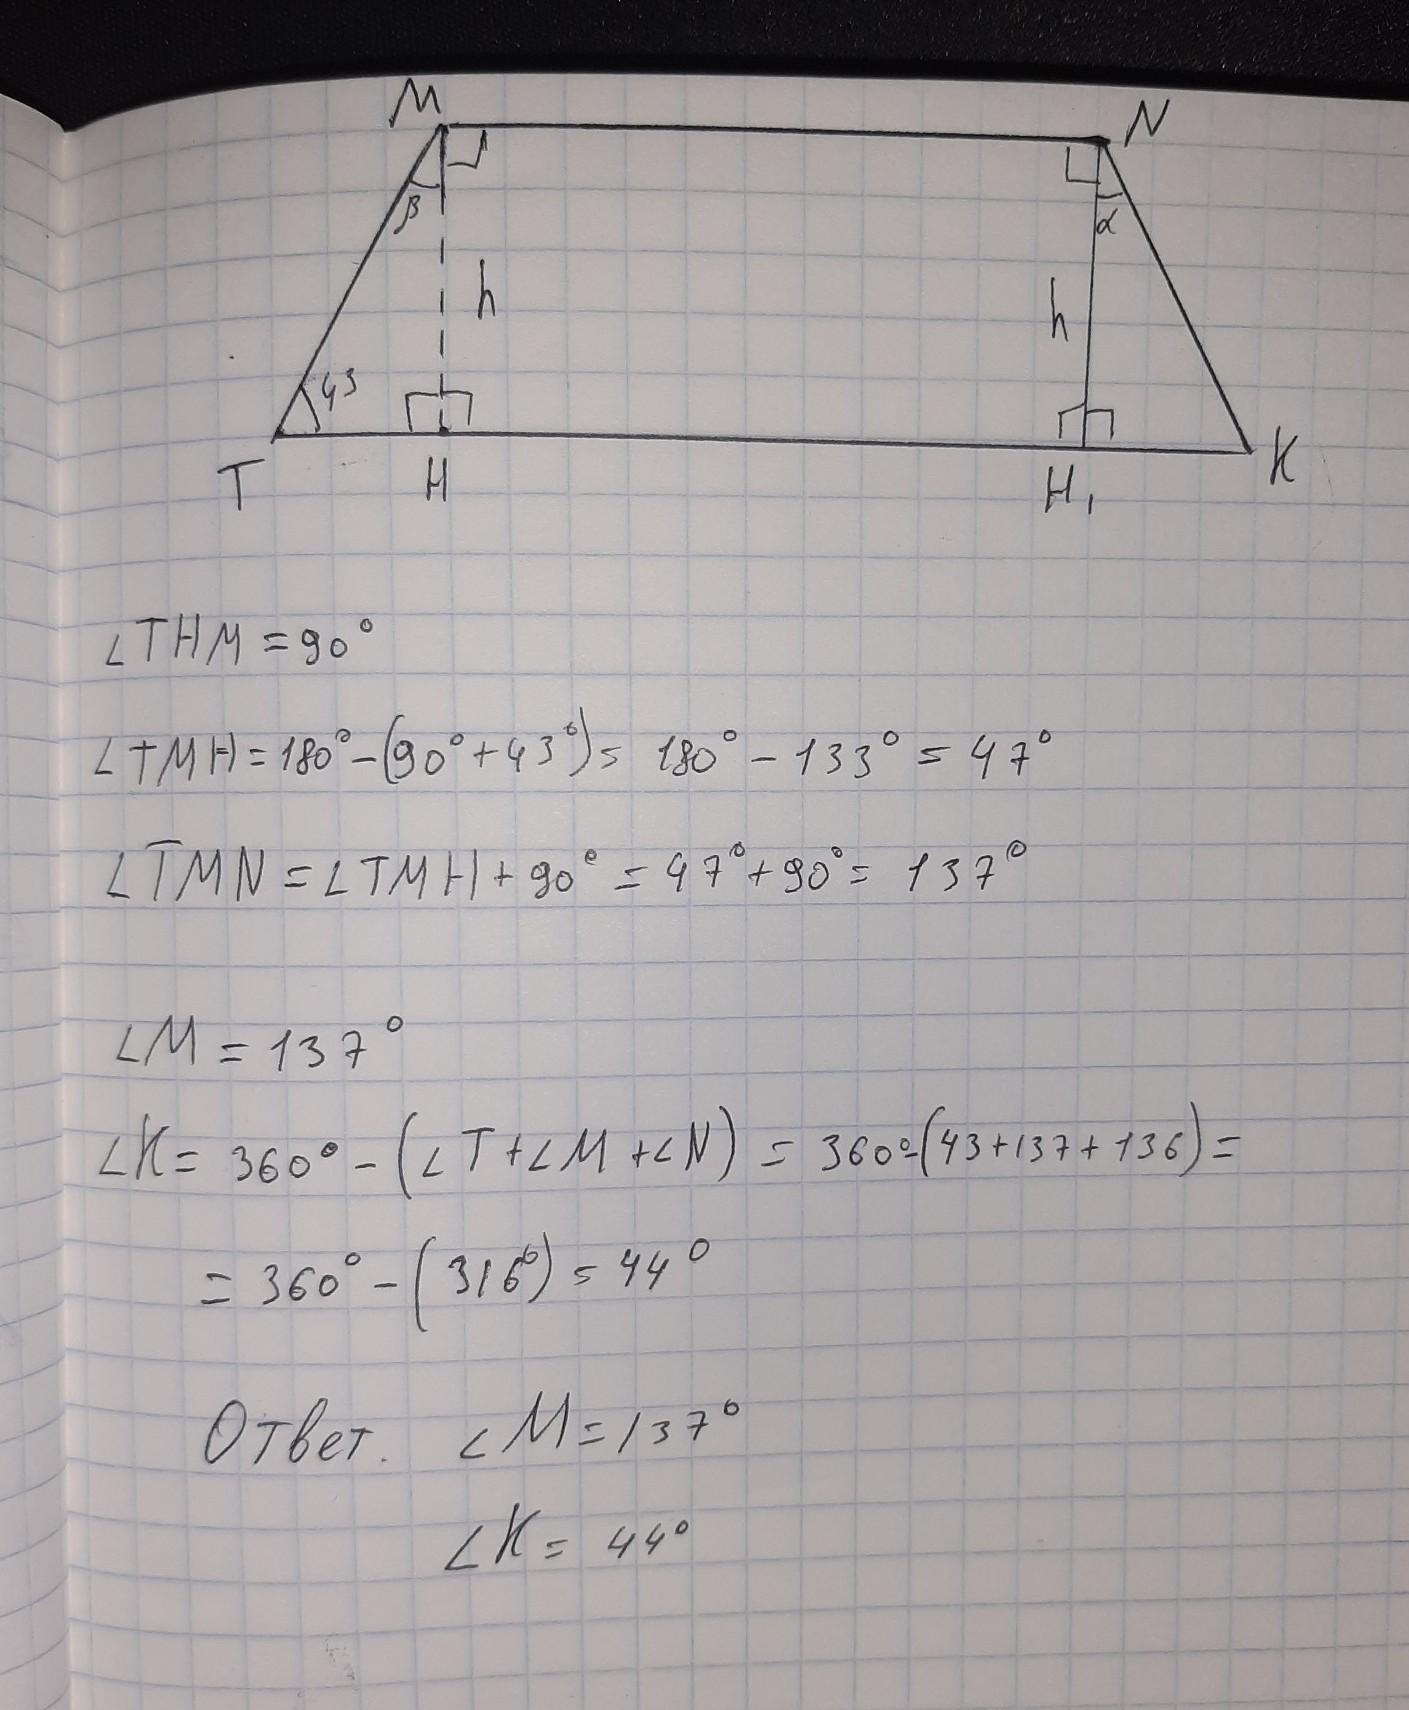 M
N
β
α
h
h
43
T
H
H₁
K
∠THM = 90°
∠TMH = 180° - (90° + 43°) = 180° - 133° = 47°
∠TMN = ∠TMH + 90° = 47° + 90° = 137°
∠M = 137°
∠K = 360° - (∠T + ∠M + ∠N) = 360° - (43 + 137 + 136) =
= 360° - (316°) = 44°
Ответ. ∠M = 137°
∠K = 44°